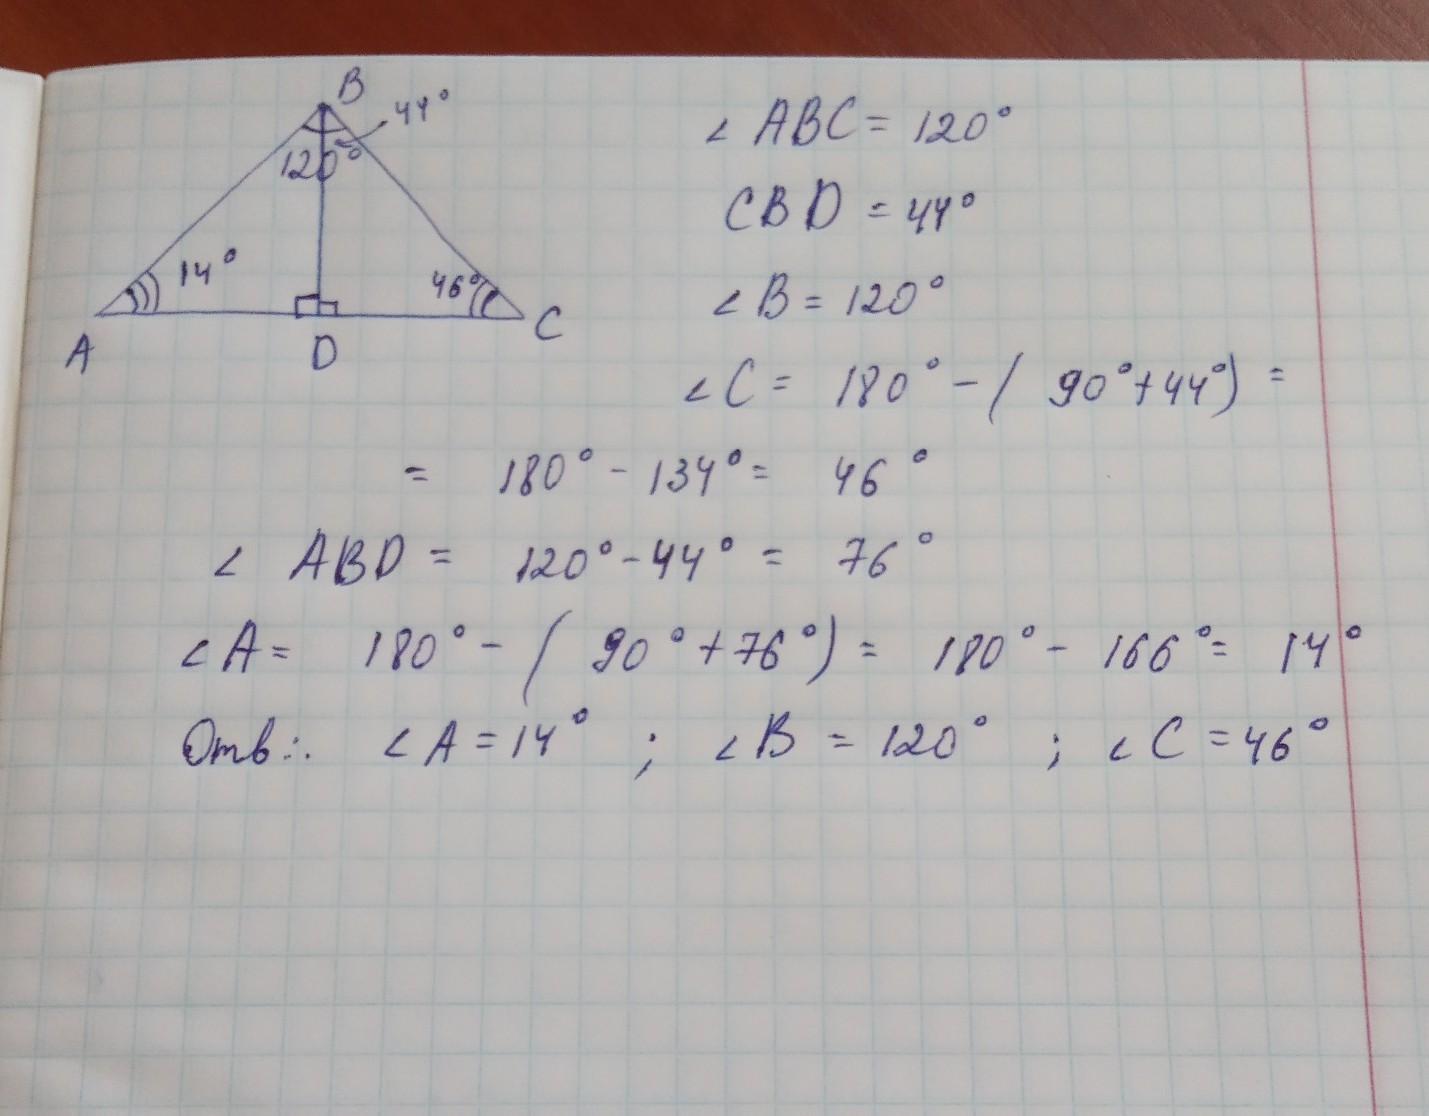 B
44°
120°
14°
46°
A
D
C
∠ ABC = 120°
CBD = 44°
∠ B = 120°
∠ C = 180° - ( 90° + 44°) =
= 180° - 134° = 46°
∠ ABD = 120° - 44° = 76°
∠ A = 180° - ( 90° + 76°) = 180° - 166° = 14°
Отв:. ∠ A = 14° ; ∠ B = 120° ; ∠ C = 46°